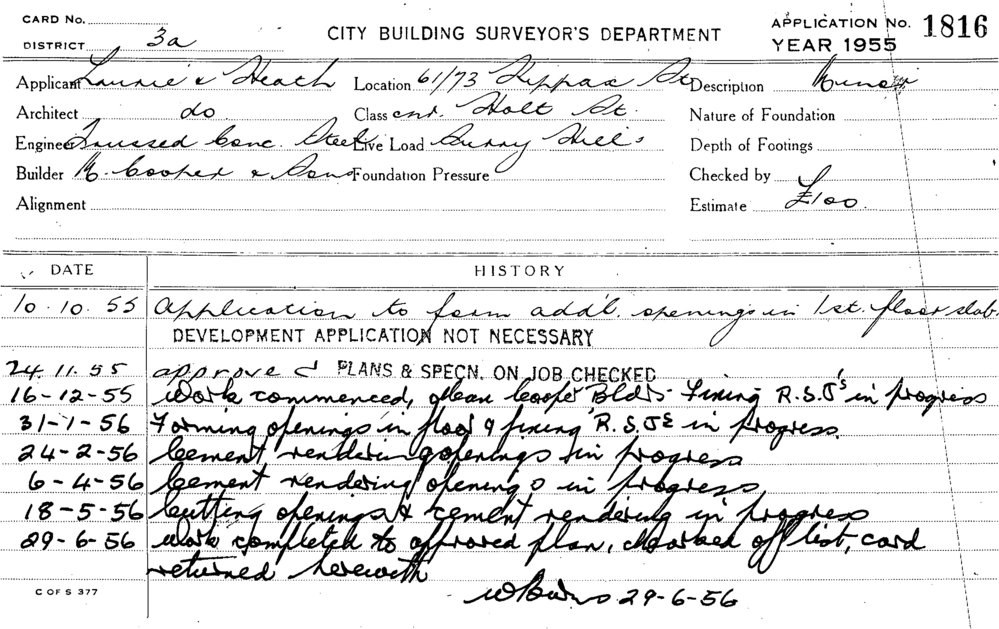 CARD No.
DISTRICT 3a
CITY BUILDING SURVEYOR'S DEPARTMENT
APPLICATION No. 1816
YEAR 1955
Applicant Laurie & Heath Location 61/73 Kippax St Description Minor
Architect do Class cnr. Holt St. Nature of Foundation
Engineer Trussed Conc. Steel Live Load Surry Hills Depth of Footings
Builder H. Cooper & Sons Foundation Pressure Checked by
Alignment Estimate £100
DATE HISTORY
10.10.55 Application to form addl. openings in 1st. floor slab.
DEVELOPMENT APPLICATION NOT NECESSARY
24.11.55 approved PLANS & SPECN. ON JOB CHECKED
16-12-55 Work commenced, Cooper Bldr- Fixing R.S.J's in progress
31-1-56 Forming openings in floor & fixing R.S.Js in progress.
24-2-56 Cement rendering openings in progress
6-4-56 Cement rendering openings in progress
18-5-56 Cutting openings & cement rendering in progress
29-6-56 Work completed to approved plan, checked off list, card
returned herewith
29-6-56
C OF S 377